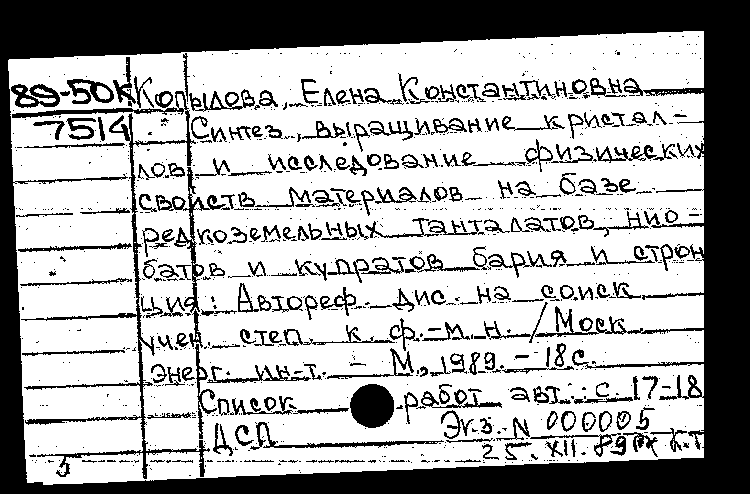 89-50к Копылова, Елена Константиновна
7514 Синтез, выращивание кристал-
лов и исследование физических
свойств материалов на базе
редкоземельных танталатов, нио-
батов и купратов бария и строн
ция: Автореф. дис. на соиск.
учен. степ. к. ф.-м. н. / Моск.
энерг. ин-т. - М., 1989. - 18 с.
Список работ авт.: с. 17-18
ДСП Экз. N 000005
25.XII.89